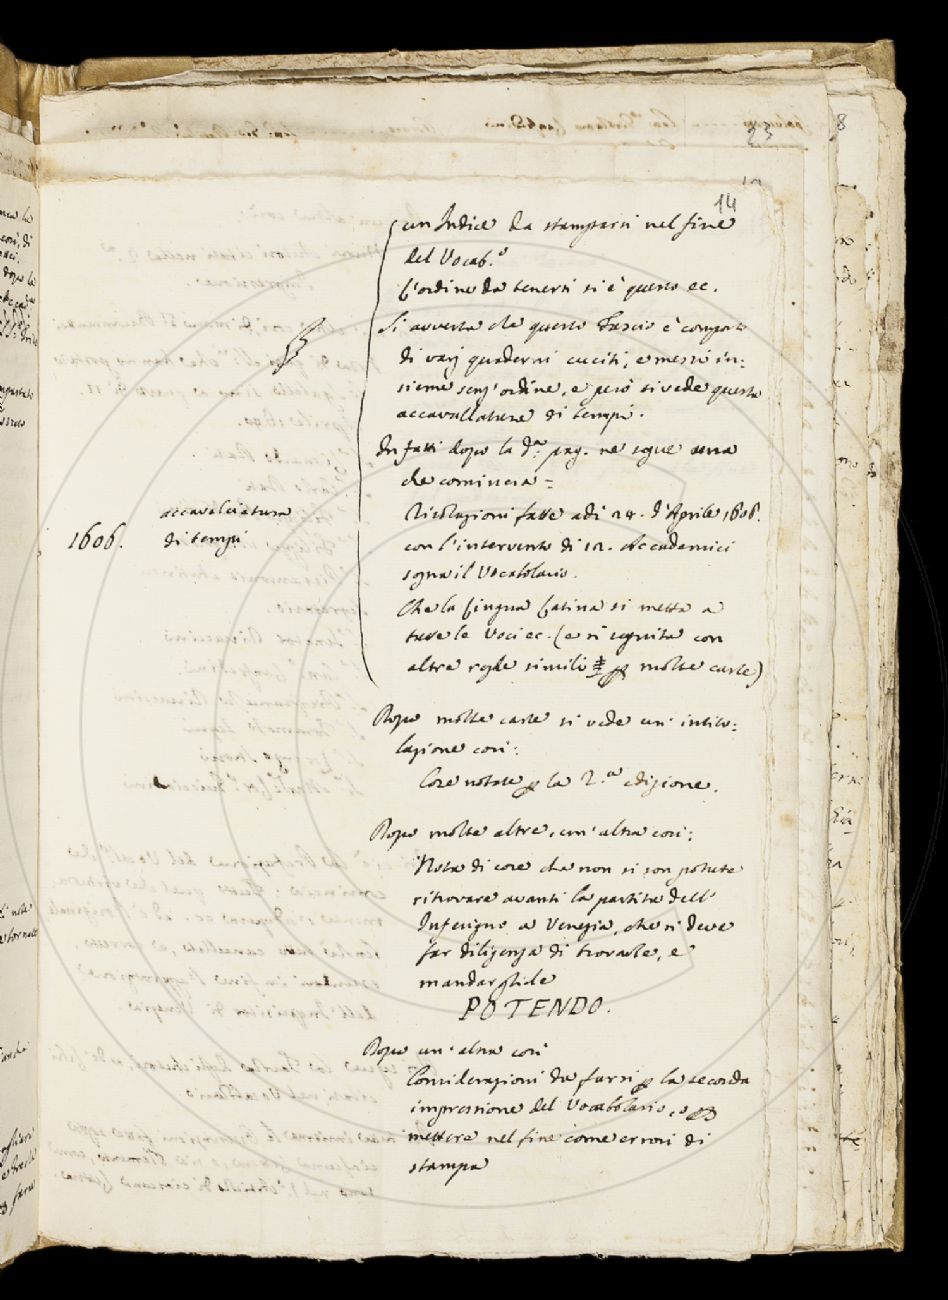 23
14
un Indice da stamparsi nel fine
del Vocab.o
L'ordine da tenersi si è questo ec.
Si avverta che questo Fascio è composto
di varj quaderni cuciti, e messi in=
sieme senz'ordine, e però si vede questa
accavallatura di tempi.
In fatti dopo la d.a pag. ne segue una
che comincia =
accavalciatura
di tempi
1606.
Risoluzioni fatte adi 24. d'Aprile 1606.
con l'intervento di 12. Accademici
sopra il Vocabolario.
Che la Lingua Latina si metta a
tutte le Voci ec. (e si seguita con
altre reg.le simili p molte carte)
Dopo molte carte si vede un' intito=
lazione così:
Cose notate p la 2.a edizione.
Dopo molte altre, un' altra così:
Nota di cose che non si son potute
ritrovare avanti la partita dell'
Inferigno a Venezia, che si deve
far diligenza di trovarle, e
mandargliele
POTENDO.
Dopo un' altra così
Considerazioni da farsi p la seconda
impressione del Vocabolario, o
mettere nel fine come errori di
stampa